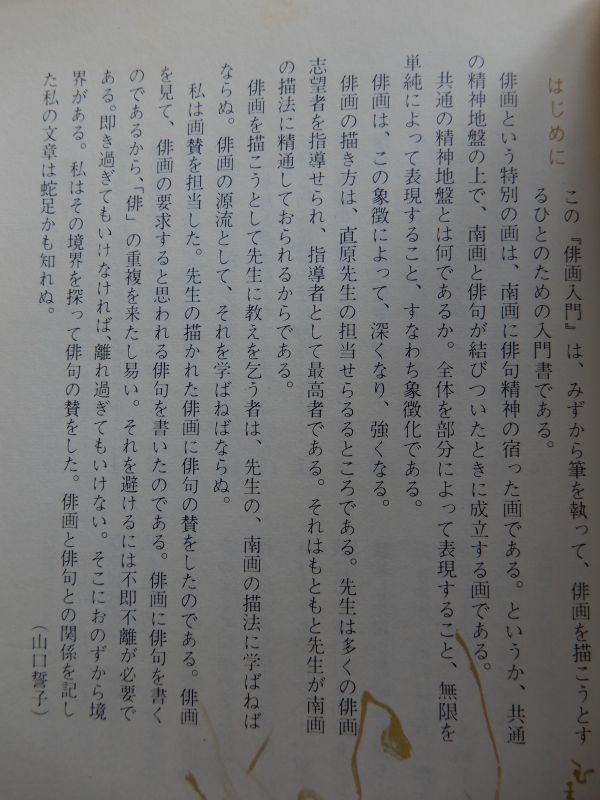 はじめに
この『俳画入門』は、みずから筆を執って、俳画を描こうとす
るひとのための入門書である。
俳画という特別の画は、南画に俳句精神の宿った画である。というか、共通
の精神地盤の上で、南画と俳句が結びついたときに成立する画である。
共通の精神地盤とは何であるか。全体を部分によって表現すること、無限を
単純によって表現すること、すなわち象徴化である。
俳画は、この象徴によって、深くなり、強くなる。
俳画の描き方は、直原先生の担当せらるるところである。先生は多くの俳画
志望者を指導せられ、指導者として最高者である。それはもともと先生が南画
の描法に精通しておられるからである。
俳画を描こうとして先生に教えを乞う者は、先生の、南画の描法に学ばねば
ならぬ。俳画の源流として、それを学ばねばならぬ。
私は画賛を担当した。先生の描かれた俳画に俳句の賛をしたのである。俳画
を見て、俳画の要求すると思われる俳句を書いたのである。俳画に俳句を書く
のであるから、「俳」の重複を来たし易い。それを避けるには不即不離が必要で
ある。即き過ぎてもいけなければ、離れ過ぎてもいけない。そこにおのずから境
界がある。私はその境界を探って俳句の賛をした。俳画と俳句との関係を記し
た私の文章は蛇足かも知れぬ。
（山口誓子）